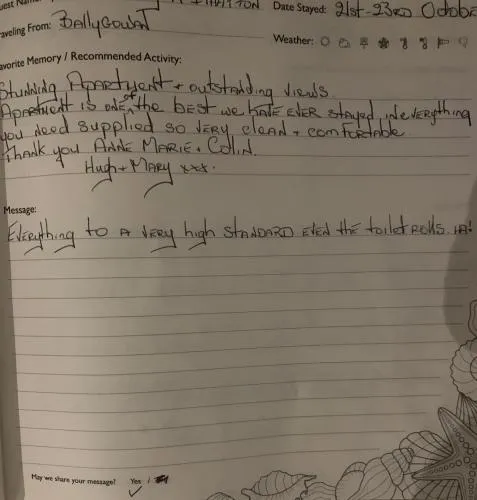 uest Name: HAMILTON Date Stayed: 21st-23RD Octobe
raveling From: BALLYGOWAN Weather:
avorite Memory / Recommended Activity:
Stunning Apartment + outstanding views.
Apartment is one of the best we have ever stayed in everything
you need supplied so very clean + comfortable
Thank you Anne Marie + Collin.
Hugh + Mary xxx.
Message:
Everything to a very high standard even the toilet rolls. HA!
May we share your message? Yes /